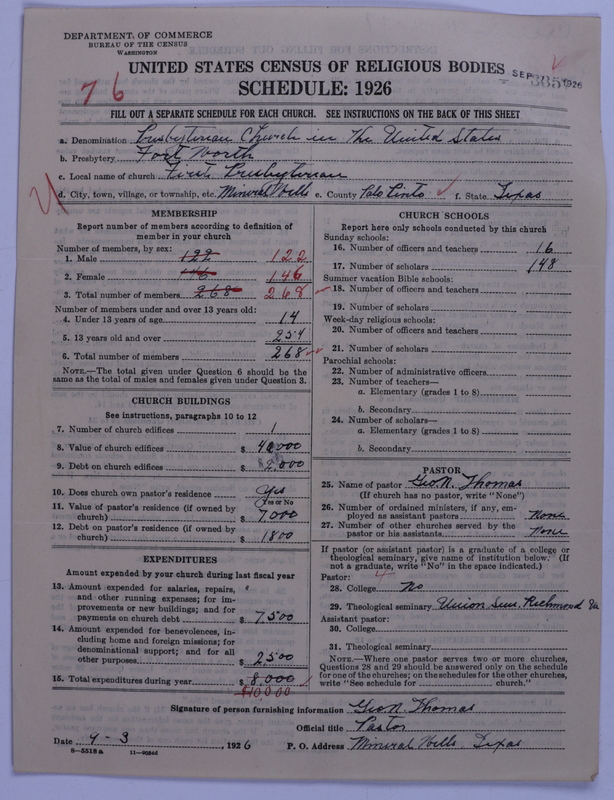 DEPARTMENT OF COMMERCE
BUREAU OF THE CENSUS
WASHINGTON
UNITED STATES CENSUS OF RELIGIOUS BODIES
SEP 1926
76
SCHEDULE: 1926
FILL OUT A SEPARATE SCHEDULE FOR EACH CHURCH. SEE INSTRUCTIONS ON THE BACK OF THIS SHEET
a. Denomination Presbyterian Church in The United States
b. Presbytery Fort Worth
c. Local name of church First Presbyterian
d. City, town, village, or township, etc. Mineral Wells e. County Palo Pinto f. State Texas
MEMBERSHIP
Report number of members according to definition of
member in your church
Number of members, by sex:
1. Male 122 122
2. Female 146 146
3. Total number of members 268 268
Number of members under and over 13 years old:
4. Under 13 years of age 14
5. 13 years old and over 254
6. Total number of members 268
NOTE.—The total given under Question 6 should be
the same as the total of males and females given under Question 3.
CHURCH BUILDINGS
See instructions, paragraphs 10 to 12
7. Number of church edifices 1
8. Value of church edifices $ 40000
9. Debt on church edifices $ 2000
10. Does church own pastor's residence Yes
Yes or No
11. Value of pastor's residence (if owned by
church) $ 7000
12. Debt on pastor's residence (if owned by
church) $ 1800
EXPENDITURES
Amount expended by your church during last fiscal year
13. Amount expended for salaries, repairs,
and other running expenses; for im-
provements or new buildings; and for
payments on church debt $ 7500
14. Amount expended for benevolences, in-
cluding home and foreign missions; for
denominational support; and for all
other purposes $ 2500
15. Total expenditures during year $ 8.000
$10000
CHURCH SCHOOLS
Report here only schools conducted by this church
Sunday schools:
16. Number of officers and teachers 16
17. Number of scholars 148
Summer vacation Bible schools:
18. Number of officers and teachers
19. Number of scholars
Week-day religious schools:
20. Number of officers and teachers
21. Number of scholars
Parochial schools:
22. Number of administrative officers
23. Number of teachers—
a. Elementary (grades 1 to 8)
b. Secondary
24. Number of scholars—
a. Elementary (grades 1 to 8)
b. Secondary
PASTOR
25. Name of pastor Geo. N. Thomas
(If church has no pastor, write "None")
26. Number of ordained ministers, if any, em-
ployed as assistant pastors None
27. Number of other churches served by the
pastor or his assistants None
If pastor (or assistant pastor) is a graduate of a college or
theological seminary, give name of institution below. (If
not a graduate, write "No" in the space indicated.)
Pastor:
28. College No
29. Theological seminary Union Sem. Richmond Va
Assistant pastor:
30. College
31. Theological seminary
NOTE.—Where one pastor serves two or more churches,
Questions 28 and 29 should be answered only on the schedule
for one of the churches; on the schedules for the other churches,
write "See schedule for church."
Signature of person furnishing information Geo. N. Thomas
Official title Pastor
Date 9-3, 1926 P. O. Address Mineral Wells Texas
8-5518a